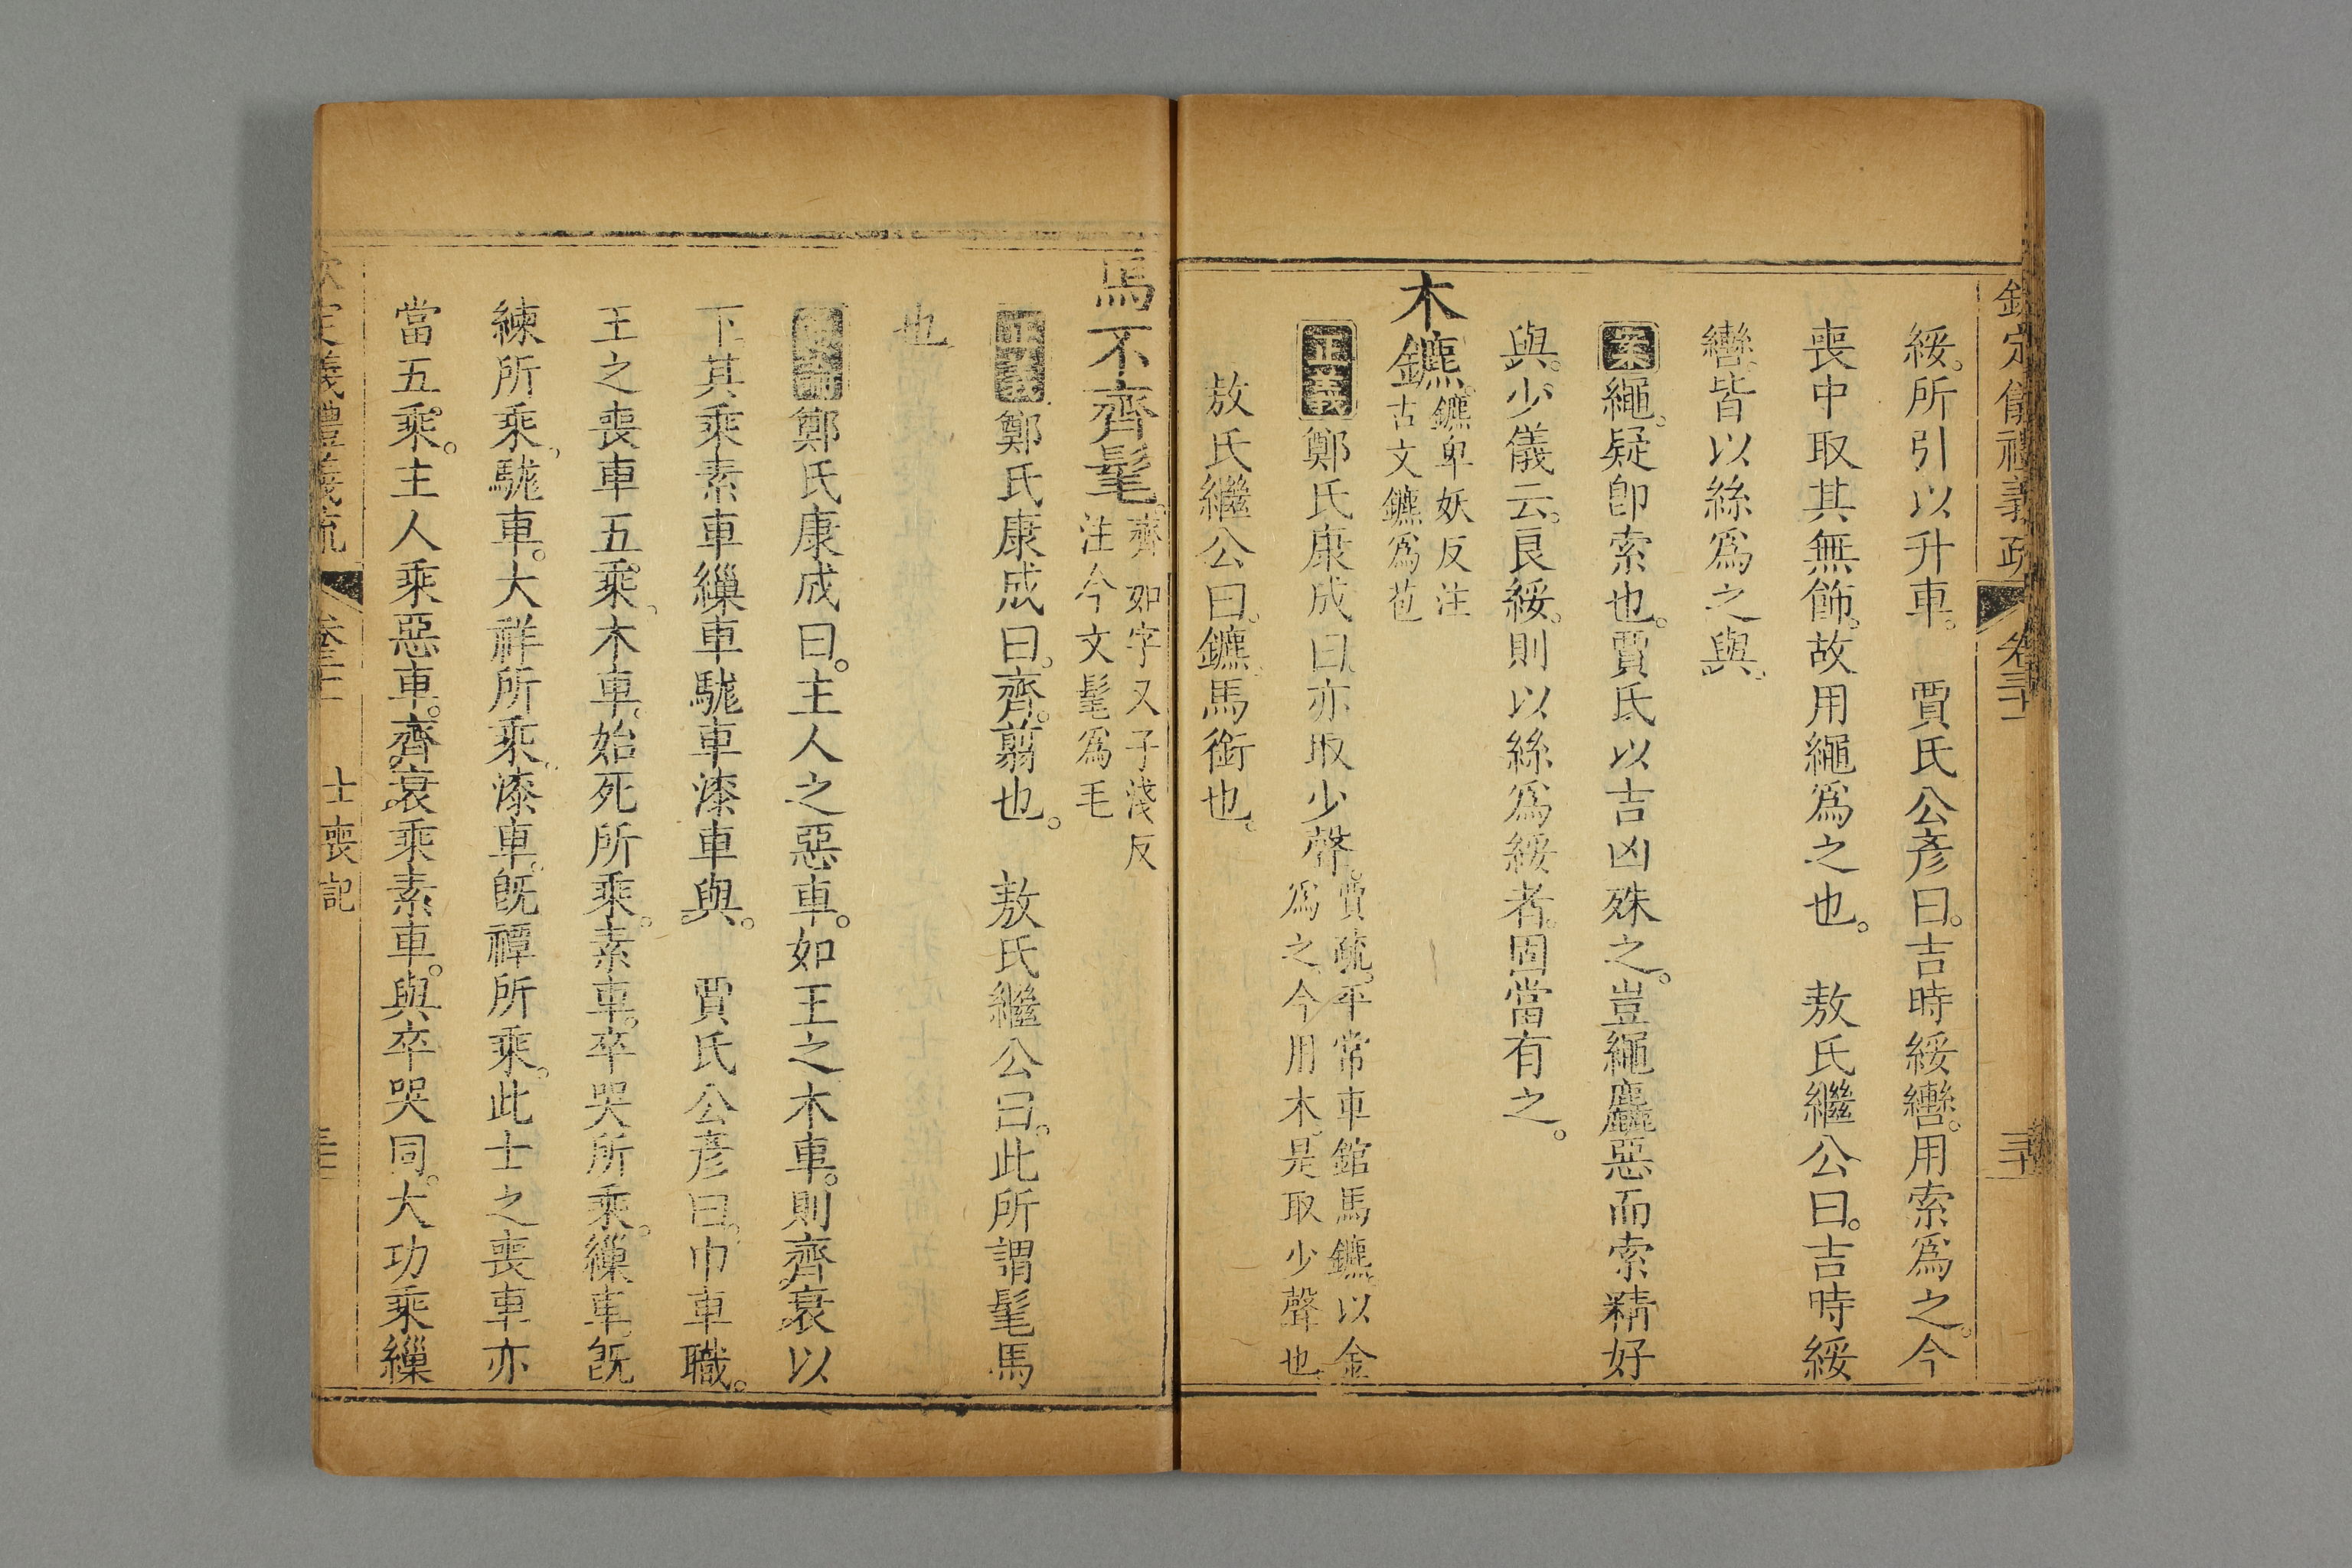 欽定儀禮義疏 卷三十一
綏。所引以升車。 賈氏公彥曰。吉時綏轡。用索爲之。今
喪中取其無飾。故用繩爲之也。 敖氏繼公曰。吉時綏
轡。皆以絲爲之與。
案繩。疑卽索也。賈氏以吉凶殊之。豈繩麤惡而索精好
與。少儀云。良綏。則以絲爲綏者。固當有之。
木鑣。鑣卑妖反注
古文鑣爲苞
正義鄭氏康成曰。亦取少聲。賈疏。平常車錧馬鑣。以金
爲之。今用木。是取少聲也
敖氏繼公曰。鑣。馬銜也。
馬不齊髦。齊如字又子淺反
注今文髦爲毛
正義鄭氏康成曰。齊。翦也。 敖氏繼公曰。此所謂髦馬
也
鄭氏康成曰。主人之惡車。如王之木車。則齊衰以
下。其乘素車繅車駹車漆車與。 賈氏公彥曰。巾車職。
王之喪車五乘。木車。始死所乘。素車。卒哭所乘。繅車。旣
練所乘。駹車。大祥所乘。漆車。旣禫所乘。此士之喪車亦
當五乘。主人乘惡車。齊衰乘素車。與卒哭同。大功乘繅
定儀禮義疏 士喪記